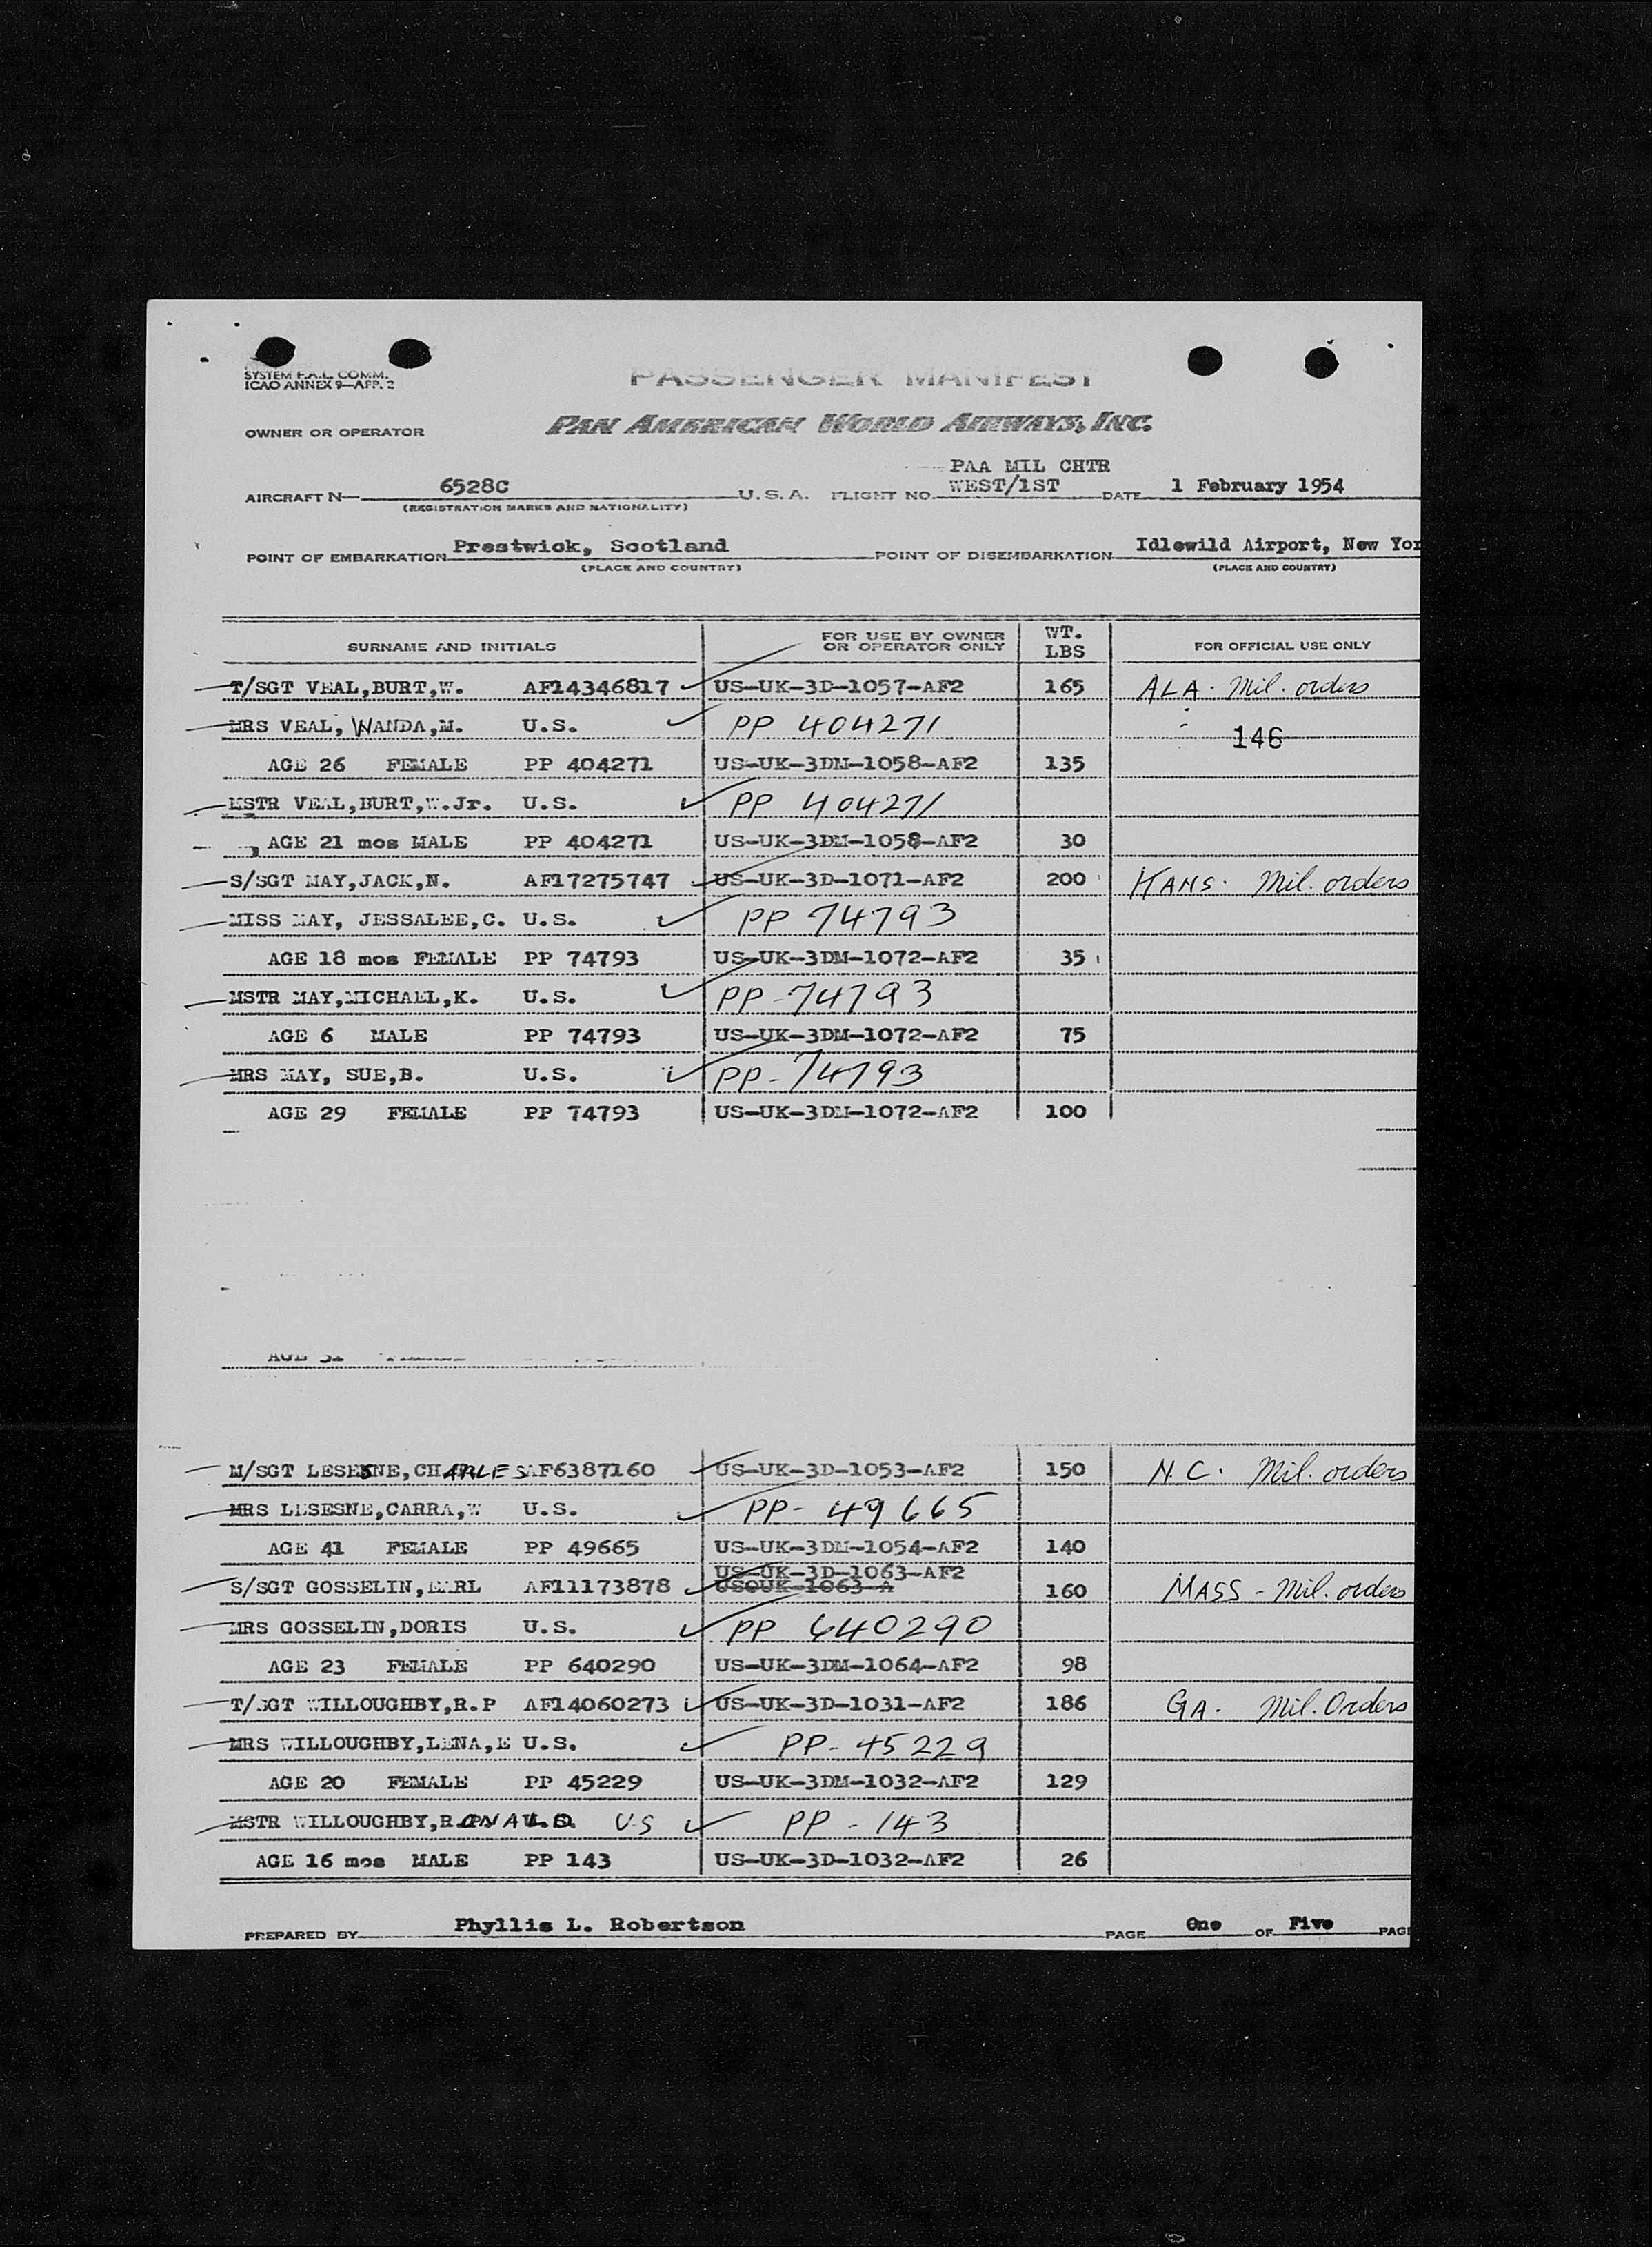 SYSTEM F.A.L. COMM.
ICAO ANNEX 9—APP. 2
PASSENGER MANIFEST
OWNER OR OPERATOR PAN AMERICAN WORLD AIRWAYS, INC.
PAA MIL CHTR
AIRCRAFT N— 6528C U.S.A. FLIGHT NO. WEST/1ST DATE 1 February 1954
(REGISTRATION MARKS AND NATIONALITY)
POINT OF EMBARKATION Prestwick, Scotland POINT OF DISEMBARKATION Idlewild Airport, New Yor
(PLACE AND COUNTRY) (PLACE AND COUNTRY)
SURNAME AND INITIALS FOR USE BY OWNER OR OPERATOR ONLY WT. LBS FOR OFFICIAL USE ONLY
T/SGT VEAL,BURT,W. AF14346817 US-UK-3D-1057-AF2 165 ALA. Mil. orders
MRS VEAL, WANDA,M. U.S. PP 404271
146
AGE 26 FEMALE PP 404271 US-UK-3DM-1058-AF2 135
MSTR VEAL,BURT,W.Jr. U.S. PP 404271
AGE 21 mos MALE PP 404271 US-UK-3DM-1058-AF2 30
S/SGT MAY,JACK,N. AF17275747 US-UK-3D-1071-AF2 200 KANS. Mil. orders
MISS MAY, JESSALEE,C. U.S. PP 74793
AGE 18 mos FEMALE PP 74793 US-UK-3DM-1072-AF2 35
MSTR MAY,MICHAEL,K. U.S. PP-74793
AGE 6 MALE PP 74793 US-UK-3DM-1072-AF2 75
MRS MAY, SUE,B. U.S. PP-74793
AGE 29 FEMALE PP 74793 US-UK-3DM-1072-AF2 100
M/SGT LESESNE,CHARLES AF6387160 US-UK-3D-1053-AF2 150 N.C. Mil. orders
MRS LESESNE,CARRA,W U.S. PP- 49665
AGE 41 FEMALE PP 49665 US-UK-3DM-1054-AF2 140
US-UK-3D-1063-AF2
S/SGT GOSSELIN,EARL AF11173878 USOUK-1063-A 160 MASS - Mil. orders
MRS GOSSELIN,DORIS U.S. PP 640290
AGE 23 FEMALE PP 640290 US-UK-3DM-1064-AF2 98
T/SGT WILLOUGHBY,R.P AF14060273 US-UK-3D-1031-AF2 186 GA. Mil. Orders
MRS WILLOUGHBY,LENA,E U.S. PP- 45229
AGE 20 FEMALE PP 45229 US-UK-3DM-1032-AF2 129
MSTR WILLOUGHBY,RONALD. U.S PP - 143
AGE 16 mos MALE PP 143 US-UK-3D-1032-AF2 26
PREPARED BY Phyllis L. Robertson PAGE One OF Five PAG